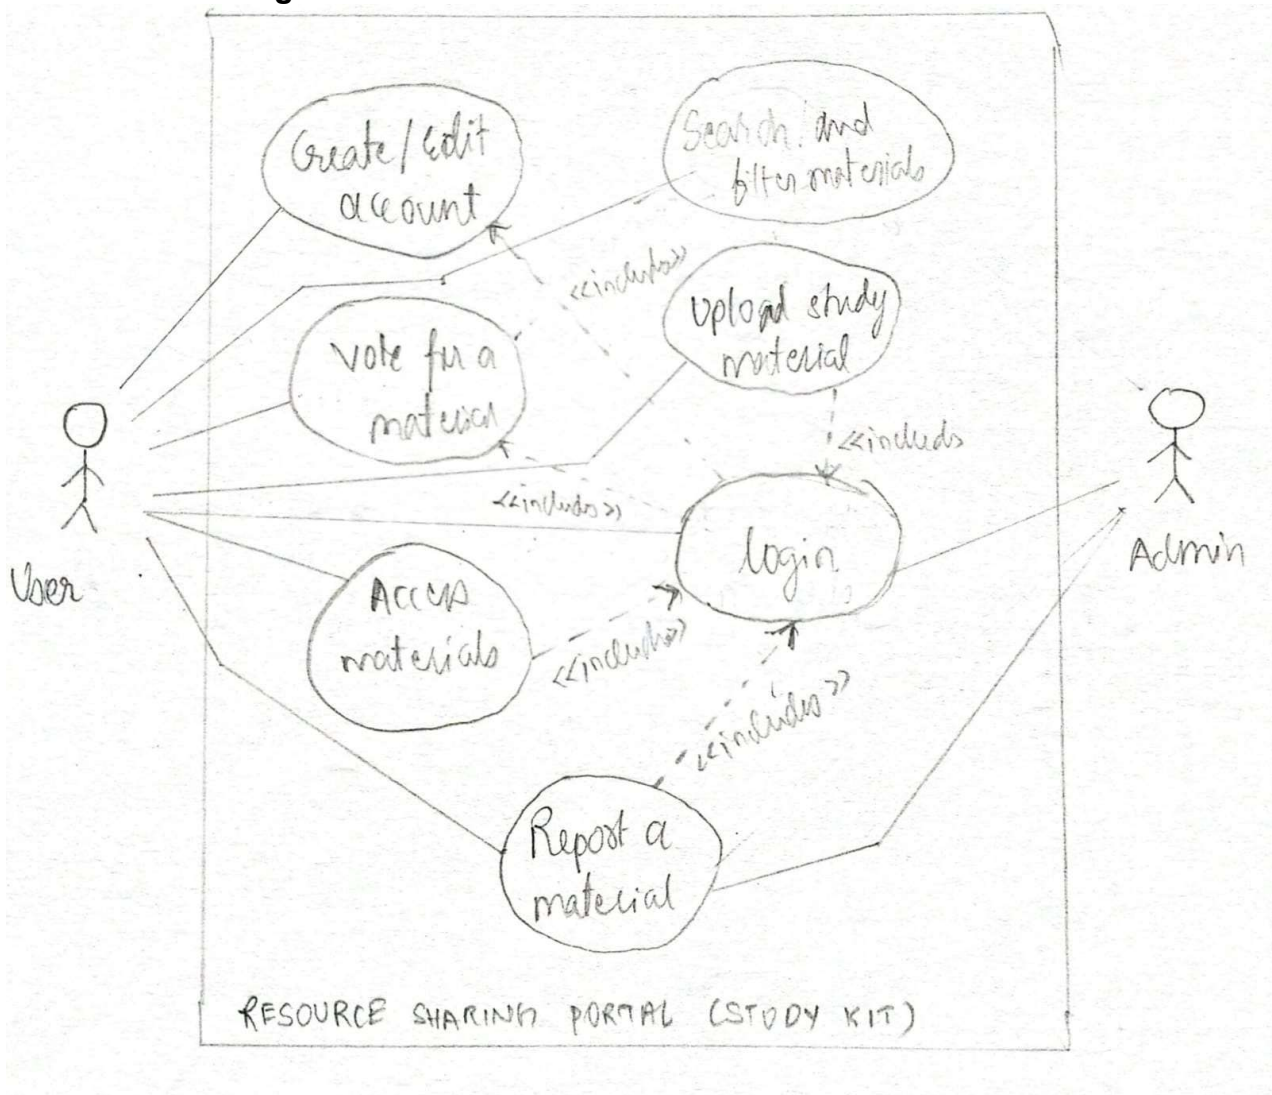 Create/Edit
account
Search and
filter materials
<<includes>>
Upload study
material
Vote for a
material
<<includes
<<includes>>
Login
User
Admin
Access
materials
<<includes>>
<<includes>>
Report a
material
RESOURCE SHARING PORTAL (STUDY KIT)